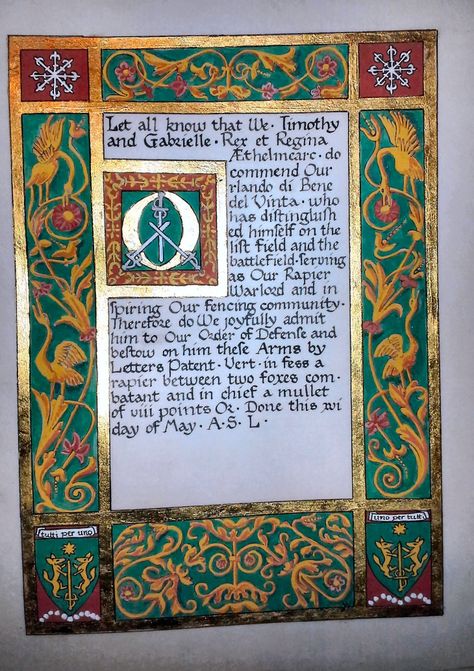 Let all know that We · Timothy
and Gabrielle · Rex et Regina
Æthelmearc · do
commend Our
Orlando di Bene
del Vinta · who
has distinguish
ed himself on the
list field and the
battlefield · serving
as Our Rapier
Warlord and in
spiring Our fencing community ·
Therefore do We joyfully admit
him to Our Order of Defense and
bestow on him these Arms by
Letters Patent · Vert · in fess a
rapier between two foxes com·
batant and in chief a mullet
of viii points Or · Done this xvi
day of May · A · S · L ·
tutti per uno
uno per tutti